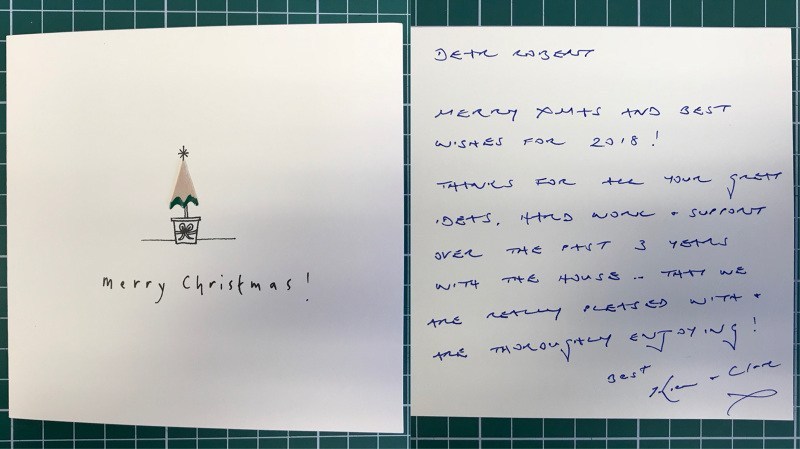 merry Christmas!
DEAR ROBERT
MERRY XMAS AND BEST
WISHES FOR 2018!
THANKS FOR ALL YOUR GREAT
IDEAS, HARD WORK + SUPPORT
OVER THE PAST 3 YEARS
WITH THE HOUSE - THAT WE
ARE REALLY PLEASED WITH +
ARE THOROUGHLY ENJOYING!
BEST
+ Clare